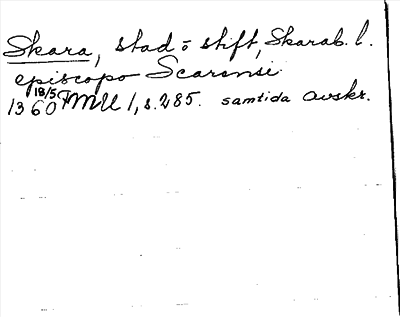 Skara, stad o stift, Skarab. l.
episcopo Scarensi
1360 18/5 FMU 1, s. 285. samtida avskr.